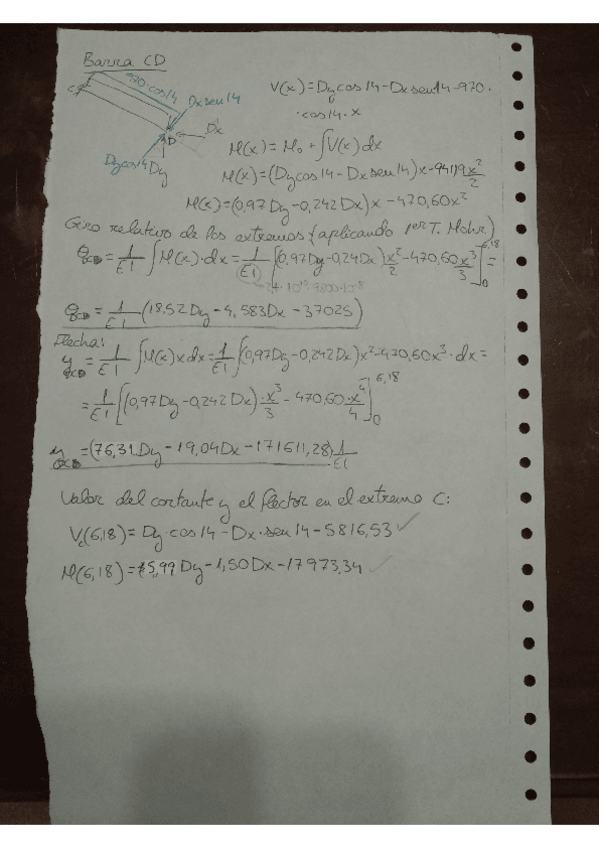 Barra CD
970·cos14
Dx sen14
C
Dx
D
Dy cos14 Dy
V(x)=Dy cos14-Dx sen14-970·
·cos14·x
M(x)=M₀+∫V(x)dx
M(x)=(Dy cos14-Dx sen14)x-941,19x²/2
M(x)=(0,97Dy-0,242Dx)x-470,60x²
Giro relativo de los extremos (aplicando 1er T. Mohr)
θCD=1/EI ∫M(x)·dx=1/EI [(0,97Dy-0,24Dx)x²/2-470,60x³/3]₀^6,18=
θCD=1/EI (18,52Dy-4,583Dx-37025)
Flecha:
yCD=1/EI ∫M(x)xdx=1/EI ∫(0,97Dy-0,242Dx)x²-470,60x³·dx=
=1/EI [(0,97Dy-0,242Dx)·x³/3-470,60·x⁴/4]₀^6,18
yCD=(76,31Dy-19,04Dx-171611,28)1/EI
Valor del cortante y el flector en el extremo C:
Vc(6,18)=Dy·cos14-Dx·sen14-5816,53 ✓
M(6,18)=5,99Dy-1,50Dx-17973,34 ✓